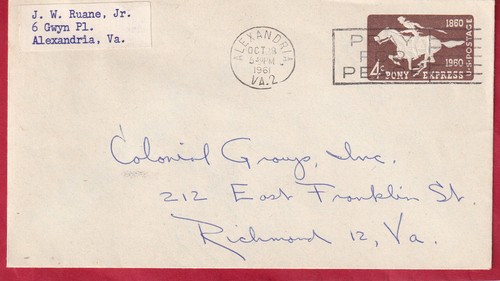 J. W. Ruane, Jr.
6 Gwyn Pl.
Alexandria, Va.
ALEXANDRIA
OCT 18
PM
1961
VA.2
P
PE
1860
1960
U.S. POSTAGE
4c PONY EXPRESS
Colonial Group, Inc.
212 East Franklin St.
Richmond 12, Va.